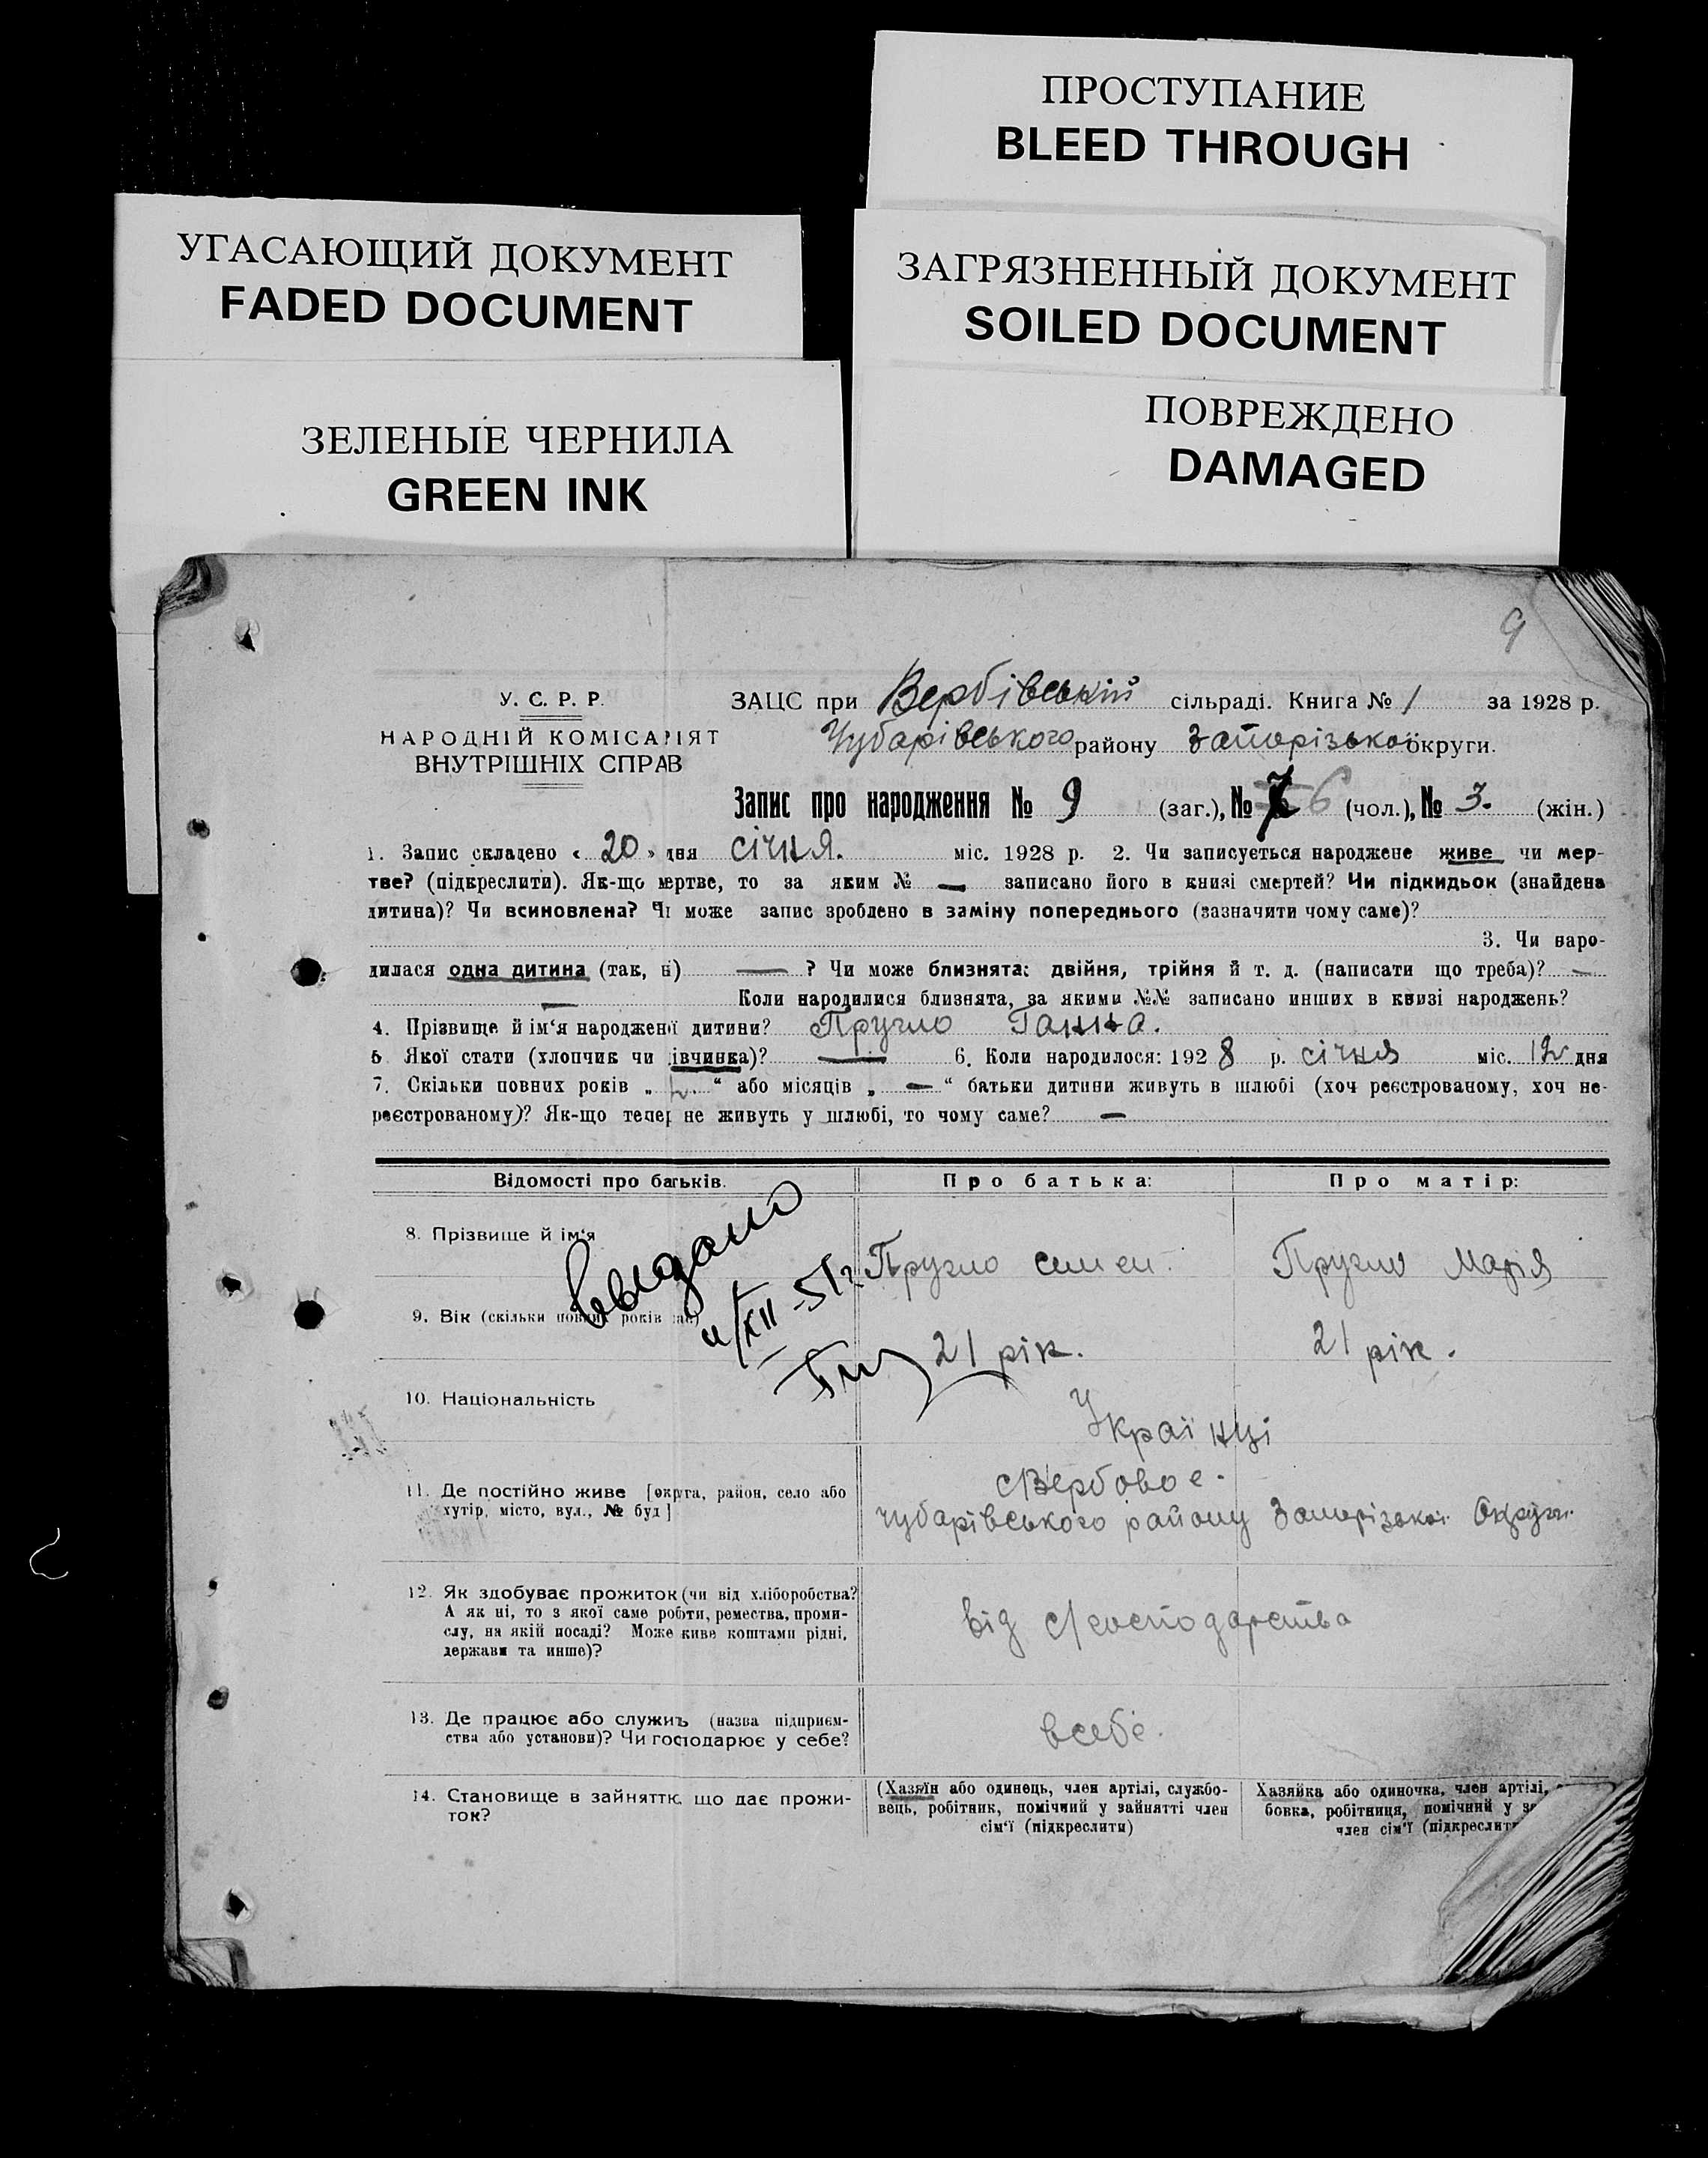 ПРОСТУПАНИЕ
BLEED THROUGH
УГАСАЮЩИЙ ДОКУМЕНТ
FADED DOCUMENT
ЗАГРЯЗНЕННЫЙ ДОКУМЕНТ
SOILED DOCUMENT
ЗЕЛЕНЫЕ ЧЕРНИЛА
GREEN INK
ПОВРЕЖДЕНО
DAMAGED
9
У. С. Р. Р.
НАРОДНІЙ КОМІСАРІЯТ
ВНУТРІШНІХ СПРАВ
ЗАЦС при Вербівській сільраді. Книга № 1 за 1928 р.
Чубарівського району Запорізької округи.
Запис про народження № 9 (заг.), № 6 (чол.), № 3. (жін.)
1. Запис складено « 20 » дня січня. міс. 1928 р. 2. Чи записується народжене живе чи мер-
тве? (підкреслити). Як-що мертве, то за яким № — записано його в книзі смертей? Чи підкидьок (знайдена
дитина)? Чи всиновлена? Чи може запис зроблено в заміну попереднього (зазначити чому саме)?
3. Чи наро-
дилася одна дитина (так, ні) — ? Чи може близнята: двійня, трійня й т. д. (написати що треба)? —
— Коли народилися близнята, за якими №№ записано инших в книзі народжень?
4. Прізвище й ім'я народженої дитини? Пругло Ганна.
5 Якої стати (хлопчик чи дівчинка)? — 6. Коли народилося: 1928 р. січня міс. 12 дня
7. Скільки повних років „ 2 “ або місяців „ — “ батьки дитини живуть в шлюбі (хоч реєстрованому, хоч не-
реєстрованому)? Як-що тепер не живуть у шлюбі, то чому саме? —
Відомості про батьків. Про батька: Про матір:
8. Прізвище й ім'я Пругло Семен. Пругло Марія
Выдано
9. Вік (скільки повних років має) 21 рік. 21 рік.
10. Національність Українці
11. Де постійно живе [округа, район, село або
хутір, місто, вул., № буд]
с Вербовое.
Чубарівського району Запорізької Округи.
12. Як здобуває прожиток (чи від хліборобства?
А як ні, то з якої саме роботи, ремества, проми-
слу, на якій посаді? Може живе коштами рідні,
держави та инше)?
від с/господарства
13. Де працює або служить (назва підприєм-
ства або установи)? Чи господарює у себе?
в себе.
14. Становище в зайняттю, що дає прожи-
ток?
(Хазяїн або одинець, член артілі, службо-
вець, робітник, помічний у зайнятті член
сім'ї (підкреслити)
Хазяйка або одиночка, член артілі,
бовка, робітниця, помічний у
член сім'ї (підкреслит